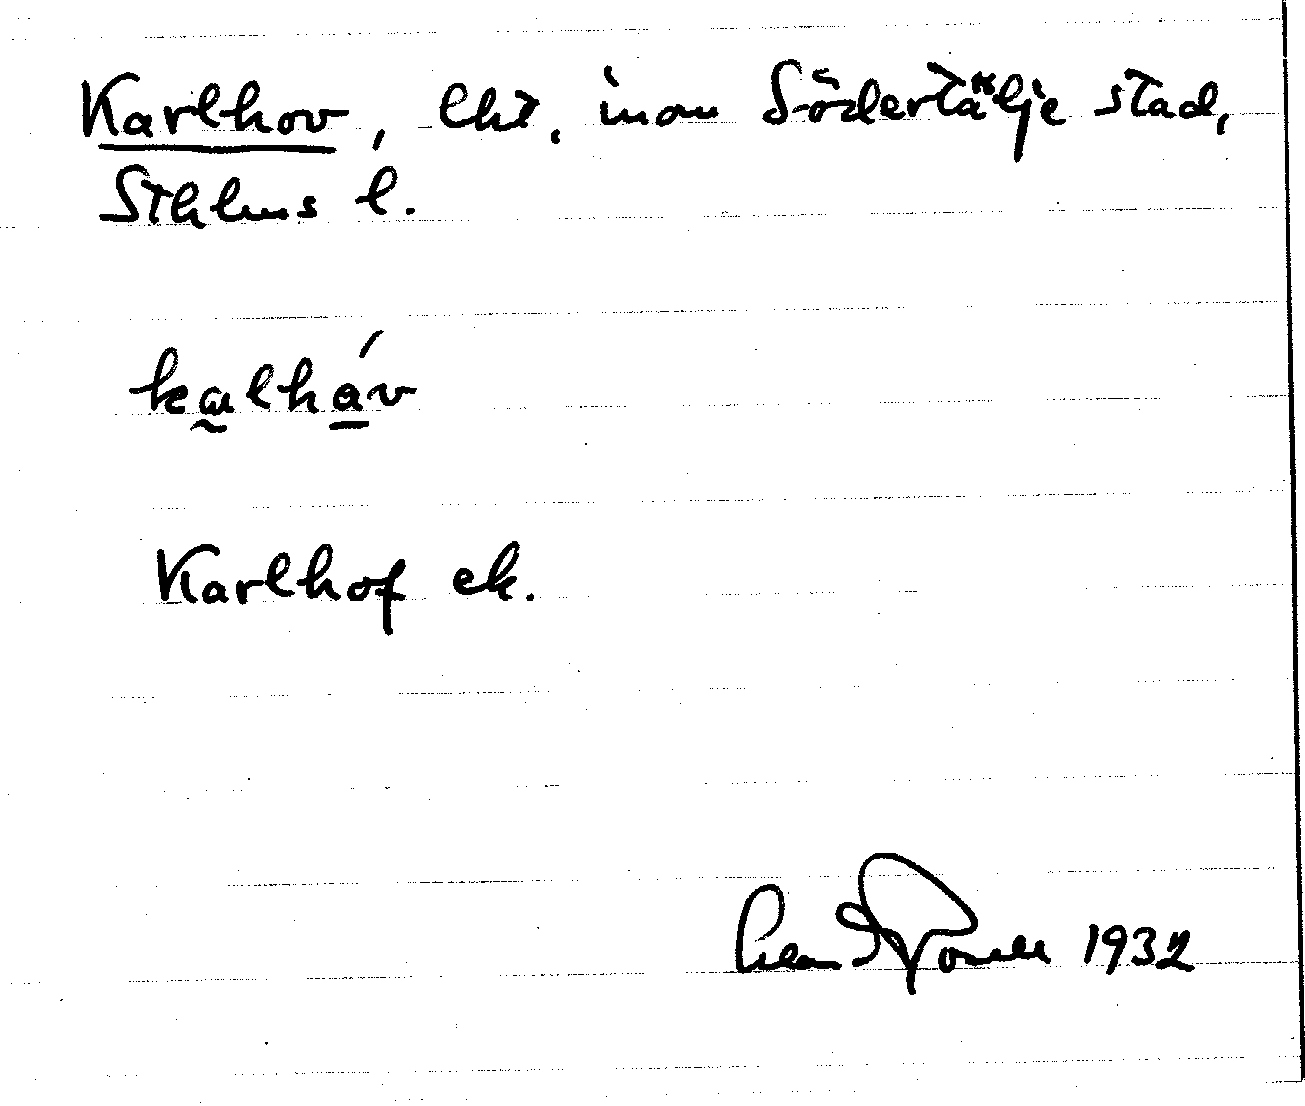 Karlhov, lht. inom Södertälje stad,
Sthlms l.
kalháv
Karlhof ek.
1932